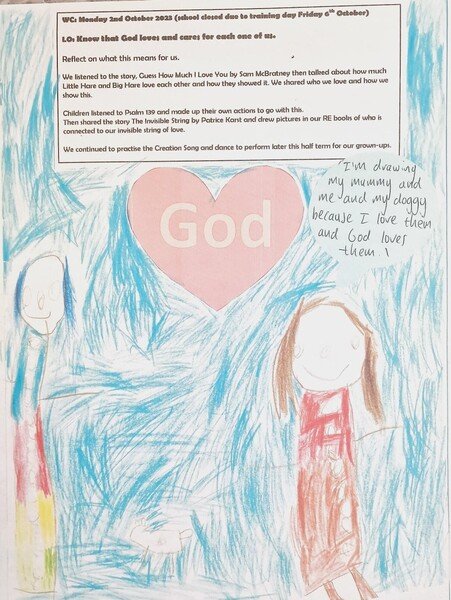 WC: Monday 2nd October 2023 (school closed due to training day Friday 6th October)
LO: Know that God loves and cares for each one of us.
Reflect on what this means for us.
We listened to the story, Guess How Much I Love You by Sam McBratney then talked about how much
Little Hare and Big Hare love each other and how they showed it. We shared who we love and how we
show this.
Children listened to Psalm 139 and made up their own actions to go with this.
Then shared the story The Invisible String by Patrice Karst and drew pictures in our RE books of who is
connected to our invisible string of love.
We continued to practise the Creation Song and dance to perform later this half term for our grown-ups.
God
"I'm drawing
my mummy and
me and my doggy
because I love them
and God loves
them."